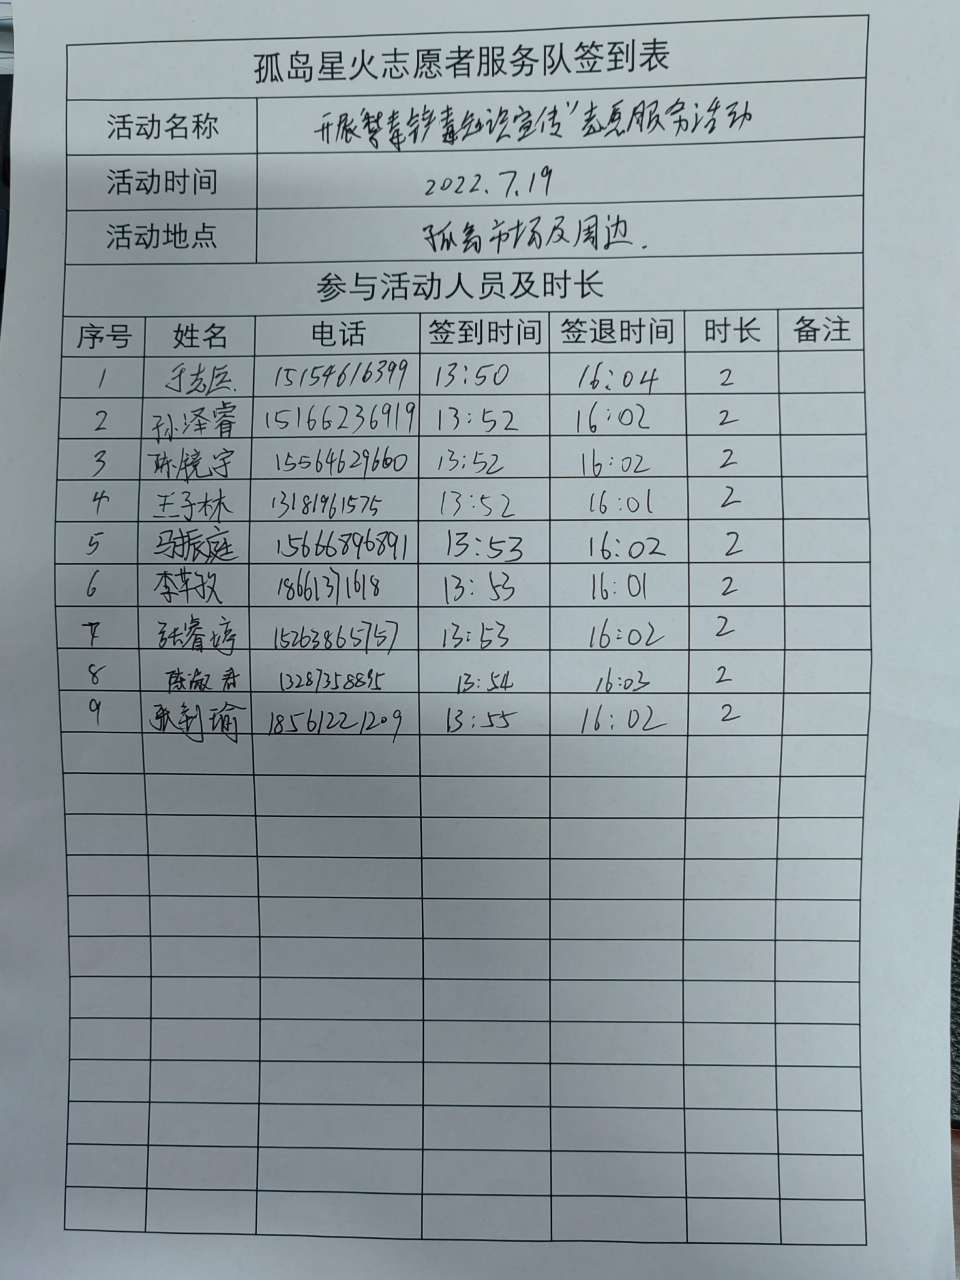 孤岛星火志愿者服务队签到表
活动名称 开展禁毒铲毒知识宣传"志愿服务活动
活动时间 2022.7.19
活动地点 孤岛市场及周边.
参与活动人员及时长
序号 姓名 电话 签到时间 签退时间 时长 备注
1 于志臣 15154616399 13:50 16:04 2
2 孙泽睿 15166236919 13:52 16:02 2
3 陈镜宇 15564629660 13:52 16:02 2
4 王子林 13181961575 13:52 16:01 2
5 马振庭 15666896891 13:53 16:02 2
6 李苹孜 18661371618 13:53 16:01 2
7 张睿婷 15263865757 13:53 16:02 2
8 陈淑君 13287358895 13:54 16:03 2
9 张钊瑜 18561221209 13:55 16:02 2